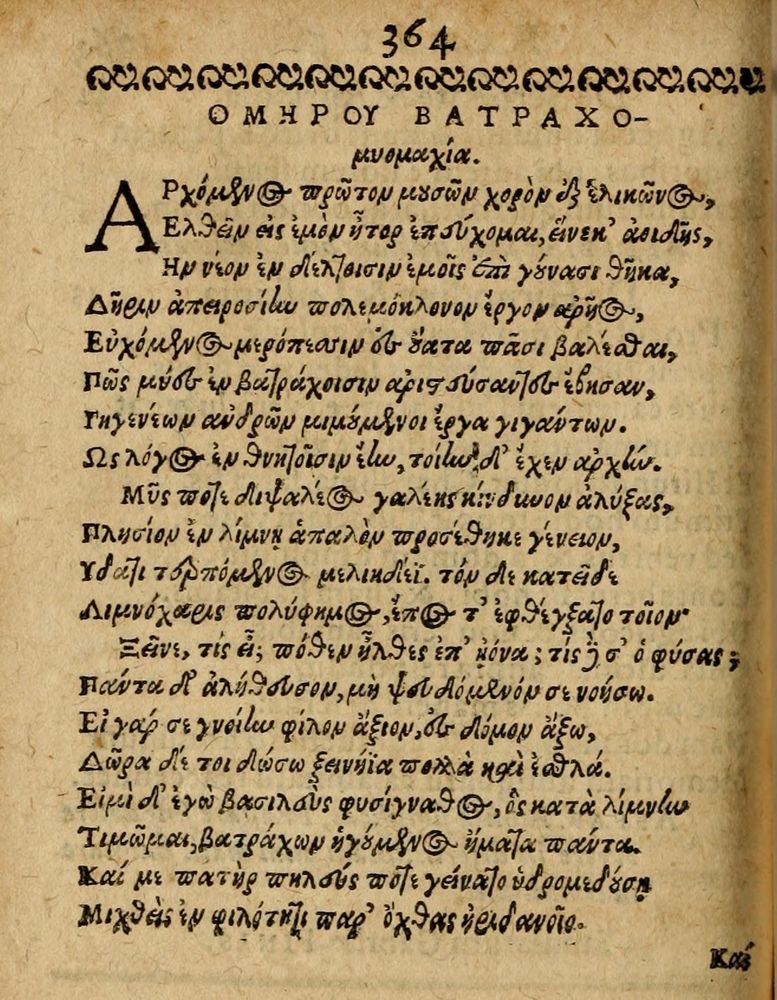 364
ΟΜΗΡΟΥ ΒΑΤΡΑΧΟ-
μυομαχία.
ΑΡχόμενος πρῶτον μουσῶν χορὸν ἐξ ἑλικῶνος,
Ελθεῖν εἰς ἐμὸν ἦτορ ἐπεύχομαι, εἵνεκ' ἀοιδῆς,
Ην νέον ἐν δέλτοισιν ἐμοῖς ἐπὶ γούνασι θῆκα,
Δῆριν ἀπειροσίην πολεμόκλονον ἔργον ἄρηος,
Εὐχόμενος μερόπεσσιν ἐς οὔατα πᾶσι βαλέσθαι,
Πῶς μύες ἐν βατράχοισιν ἀριστεύσαντες ἔβησαν,
Γηγενέων ἀνδρῶν μιμούμενοι ἔργα γιγάντων.
Ως λόγος ἐν θνητοῖσιν ἔην, τοίην δ' ἔχεν ἀρχήν.
Μῦς ποτε διψαλέος γαλέης κίνδυνον ἀλύξας,
Πλησίον ἐν λίμνῃ ἁπαλὸν προσέθηκε γένειον,
Υδατι τερπόμενος μελιηδέϊ. τὸν δὲ κατεῖδε
Λιμνόχαρις πολύφημος, ἔπος τ' ἐφθέγξατο τοῖον·
Ξεῖνε, τίς εἶ; πόθεν ἦλθες ἐπ' ἠόνα; τίς δέ σ' ὁ φύσας;
Πάντα δ' ἀλήθευσον, μὴ ψευδόμενόν σε νοήσω.
Εἰ γάρ σε γνοίην φίλον ἄξιον, ἐς δόμον ἄξω,
Δῶρα δέ τοι δώσω ξεινήϊα πολλὰ καὶ ἐσθλά.
Εἰμὶ δ' ἐγὼ βασιλεὺς φυσίγναθος, ὃς κατὰ λίμνην
Τιμῶμαι, βατράχων ἡγούμενος ἤματα πάντα.
Καί με πατὴρ πηλεύς ποτε γείνατο ὑδρομεδούσῃ
Μιχθεὶς ἐν φιλότητι παρ' ὄχθας ἠριδανοῖο.
Καί